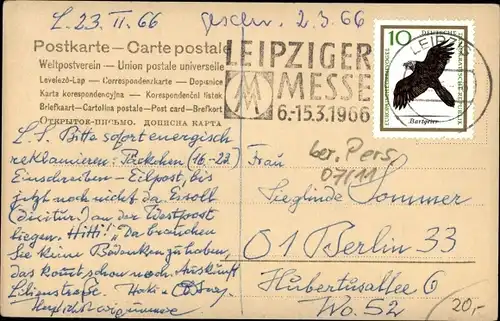 L. 23. II. 66 geschr. 2.3.66
Postkarte — Carte postale
Weltpostverein — Union postale universelle
Levelező-Lap — Correspondenzkarte — Dopisnice
Karta korespondencyjna — Korespondenční lístek
Briefkaart — Cartolina postale — Post card — Brefkort
Открытое письмо. Дописна карта
LEIPZIGER
MESSE
6.-15.3.1966
LEIPZIG
10
DEUTSCHE DEMOKRATISCHE REPUBLIK
Bartgeier
L. S. Bitte sofort energisch
reklamieren: Päckchen (16.-22.)
Einschreiben - Eilpost, bis
jetzt noch nicht da. Es soll
an der Westpost
liegen. "Da brauchen
Sie keine Bedenken zu haben,
das kommt schon noch. Auskunft
Lilienstraße.
Frau
Sieglinde Sommer
01 Berlin 33
Hubertusallee 6
Wo. 52
ber. Pers.
07/11
20,-